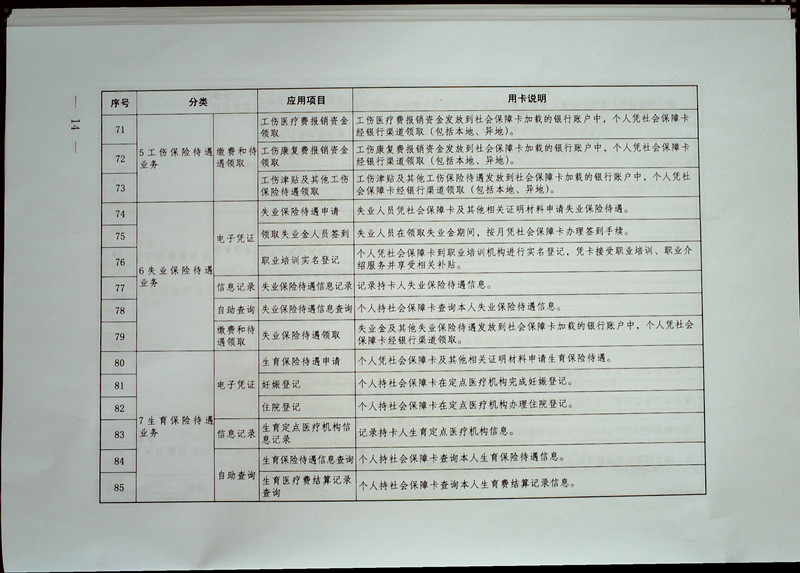 — 14 —
序号 分类 应用项目 用卡说明
71 5工伤保险待遇业务 缴费和待遇领取 工伤医疗费报销资金领取 工伤医疗费报销资金发放到社会保障卡加载的银行账户中，个人凭社会保障卡经银行渠道领取（包括本地、异地）。
72 工伤康复费报销资金领取 工伤康复费报销资金发放到社会保障卡加载的银行账户中，个人凭社会保障卡经银行渠道领取（包括本地、异地）。
73 工伤津贴及其他工伤保险待遇领取 工伤津贴及其他工伤保险待遇发放到社会保障卡加载的银行账户中，个人凭社会保障卡经银行渠道领取（包括本地、异地）。
74 6失业保险待遇业务 电子凭证 失业保险待遇申请 失业人员凭社会保障卡及其他相关证明材料申请失业保险待遇。
75 领取失业金人员签到 失业人员在领取失业金期间，按月凭社会保障卡办理签到手续。
76 职业培训实名登记 个人凭社会保障卡到职业培训机构进行实名登记，凭卡接受职业培训、职业介绍服务并享受相关补贴。
77 信息记录 失业保险待遇信息记录 记录持卡人失业保险待遇信息。
78 自助查询 失业保险待遇信息查询 个人持社会保障卡查询本人失业保险待遇信息。
79 缴费和待遇领取 失业保险待遇领取 失业金及其他失业保险待遇发放到社会保障卡加载的银行账户中，个人凭社会保障卡经银行渠道领取。
80 7生育保险待遇业务 电子凭证 生育保险待遇申请 个人凭社会保障卡及其他相关证明材料申请生育保险待遇。
81 妊娠登记 个人持社会保障卡在定点医疗机构完成妊娠登记。
82 住院登记 个人持社会保障卡在定点医疗机构办理住院登记。
83 信息记录 生育定点医疗机构信息记录 记录持卡人生育定点医疗机构信息。
84 自助查询 生育保险待遇信息查询 个人持社会保障卡查询本人生育保险待遇信息。
85 生育医疗费结算记录查询 个人持社会保障卡查询本人生育费结算记录信息。